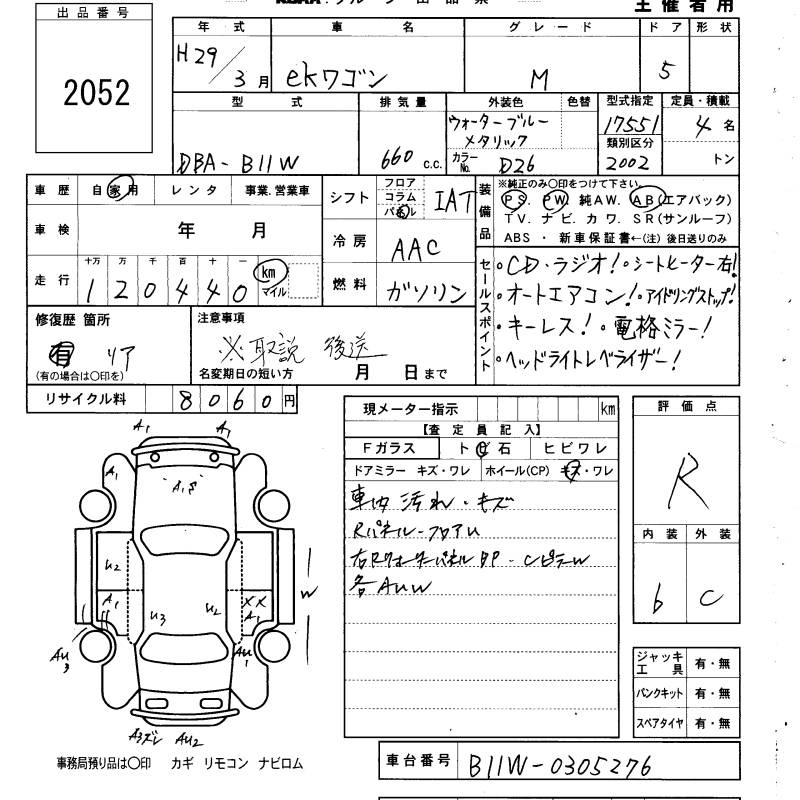 出品番号
2052
主催者用
年式 車名 グレード ドア 形状
H29/3月 ekワゴン M 5
型式 排気量 外装色 色替 型式指定 定員・積載
DBA-B11W 660 c.c. ウォーターブルーメタリック 17551 4名
カラーNo. D26 類別区分 2002 トン
車歴 自家用 レンタ 事業.営業車
シフト フロア コラム パネル IAT
装備品 ※純正のみ〇印をつけて下さい。
PS. PW 純AW. AB(エアバッグ)
TV. ナビ. カワ. SR(サンルーフ)
ABS ・ 新車保証書←(注)後日送りのみ
車検 年 月
冷房 AAC
走行 十万 万 千 百 十 一
120440 km マイル
燃料 ガソリン
セールスポイント
・CD・ラジオ!・シートヒーター右!
・オートエアコン!・アイドリングストップ!
・キーレス!・電格ミラー!
・ヘッドライトレベライザー!
修復歴 箇所
有 リア
(有の場合は〇印を)
注意事項
※取説 後送
名変期日の短い方 月 日まで
リサイクル料 8060円
現メーター指示 km
【査定員記入】
Fガラス トビ石 ヒビワレ
ドアミラー キズ・ワレ ホイール(CP) キズ・ワレ
車内 汚れ・キズ
Rパネル-フロアU
右Rクォーターパネル SP - CピラーW
各AUW
評価点
R
内装 外装
6 C
A1 A1
A1
A1
U2
A1
U3
U2
XX
A1
W
AU3
AU1
A3ズレ AU2
ジャッキ工具 有・無
パンクキット 有・無
スペアタイヤ 有・無
事務局預り品は〇印 カギ リモコン ナビロム
車台番号 B11W-0305276